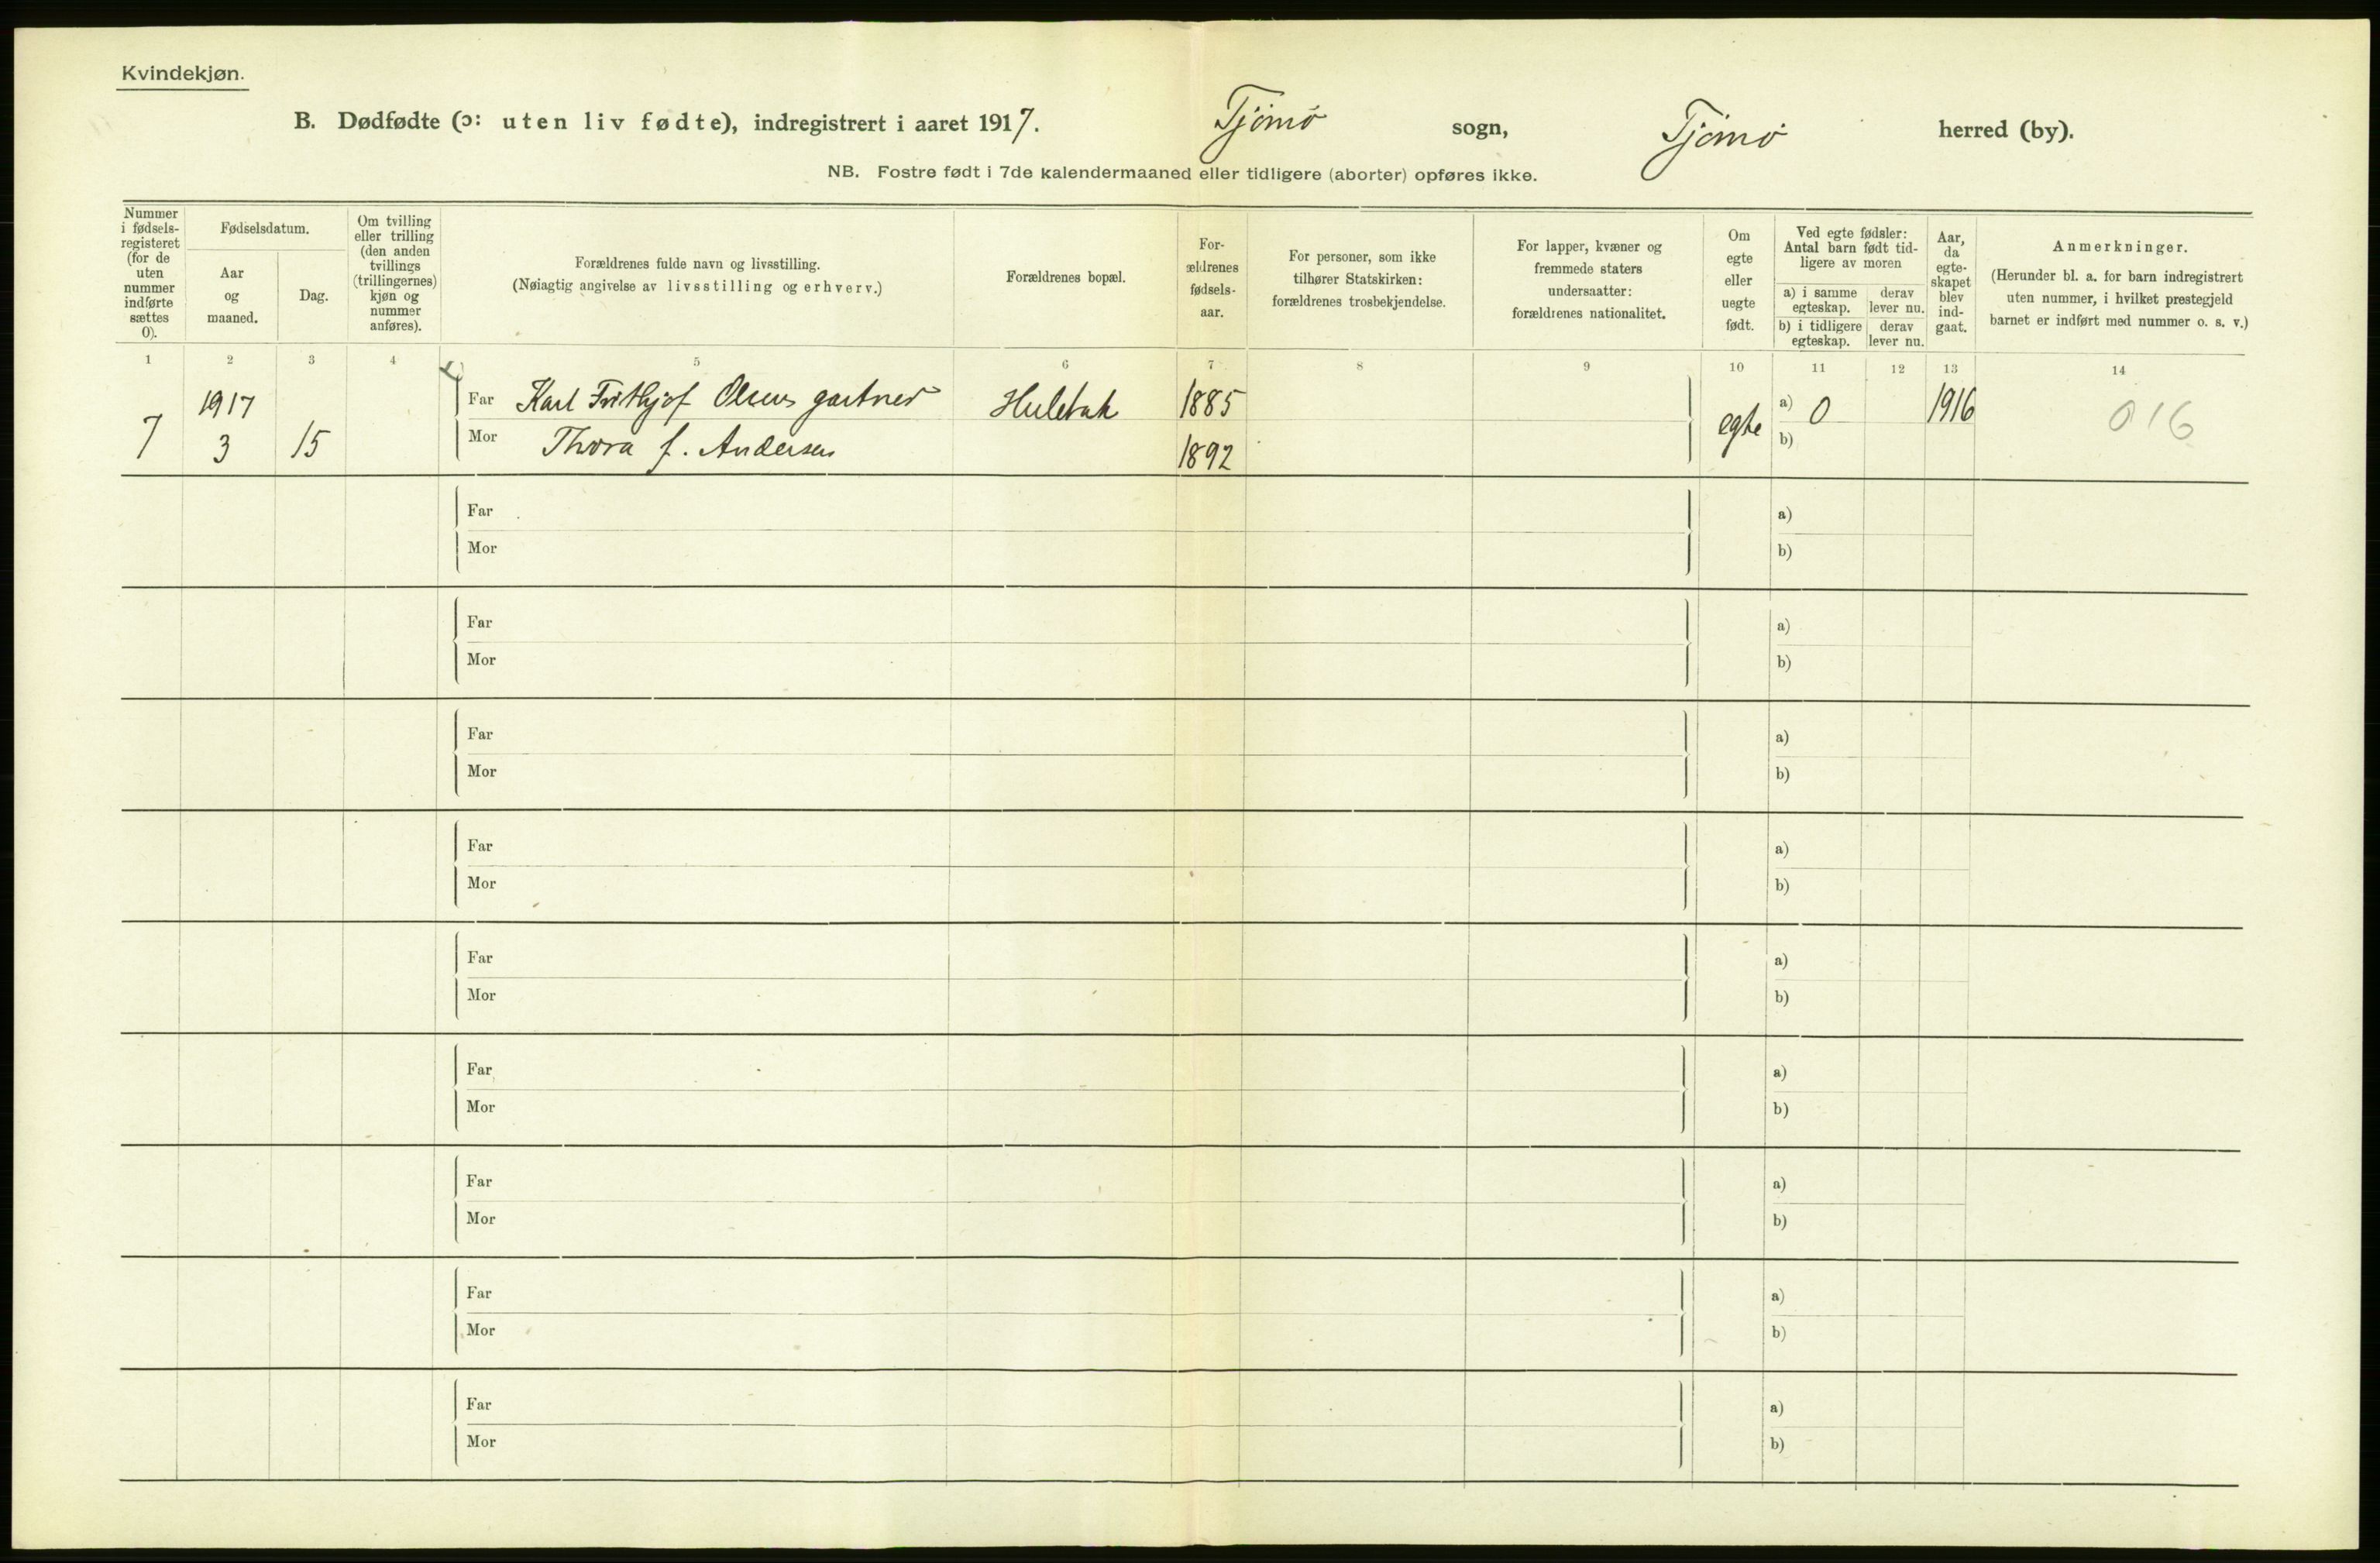 Kvindekjøn.
B. Dødfødte (ɔ: uten liv fødte), indregistrert i aaret 1917. Tjømø sogn, Tjømø herred (by).
NB. Fostre født i 7de kalendermaaned eller tidligere (aborter) opføres ikke.
Nummer i fødsels-registeret (for de uten nummer indførte sættes 0).
Fødselsdatum.
Aar og maaned.
Dag.
Om tvilling eller trilling (den anden tvillings (trillingernes) kjøn og nummer anføres).
Forældrenes fulde navn og livsstilling.
(Nøiagtig angivelse av livsstilling og erhverv.)
Forældrenes bopæl.
For-ældrenes fødsels-aar.
For personer, som ikke tilhører Statskirken: forældrenes trosbekjendelse.
For lapper, kvæner og fremmede staters undersaatter: forældrenes nationalitet.
Om egte eller uegte født.
Ved egte fødsler: Antal barn født tid-ligere av moren
a) i samme egteskap.
derav lever nu.
b) i tidligere egteskap.
derav lever nu.
Aar, da egte-skapet blev ind-gaat.
Anmerkninger.
(Herunder bl. a. for barn indregistrert uten nummer, i hvilket prestegjeld barnet er indført med nummer o. s. v.)
1 2 3 4 5 6 7 8 9 10 11 12 13 14
7 1917 3 15
Far Karl Frithjof Olsen gartner Huletak 1885 egte a) 0 1916 016
Mor Thora f. Andersen 1892 b)
Far a)
Mor b)
Far a)
Mor b)
Far a)
Mor b)
Far a)
Mor b)
Far a)
Mor b)
Far a)
Mor b)
Far a)
Mor b)
Far a)
Mor b)
Far a)
Mor b)